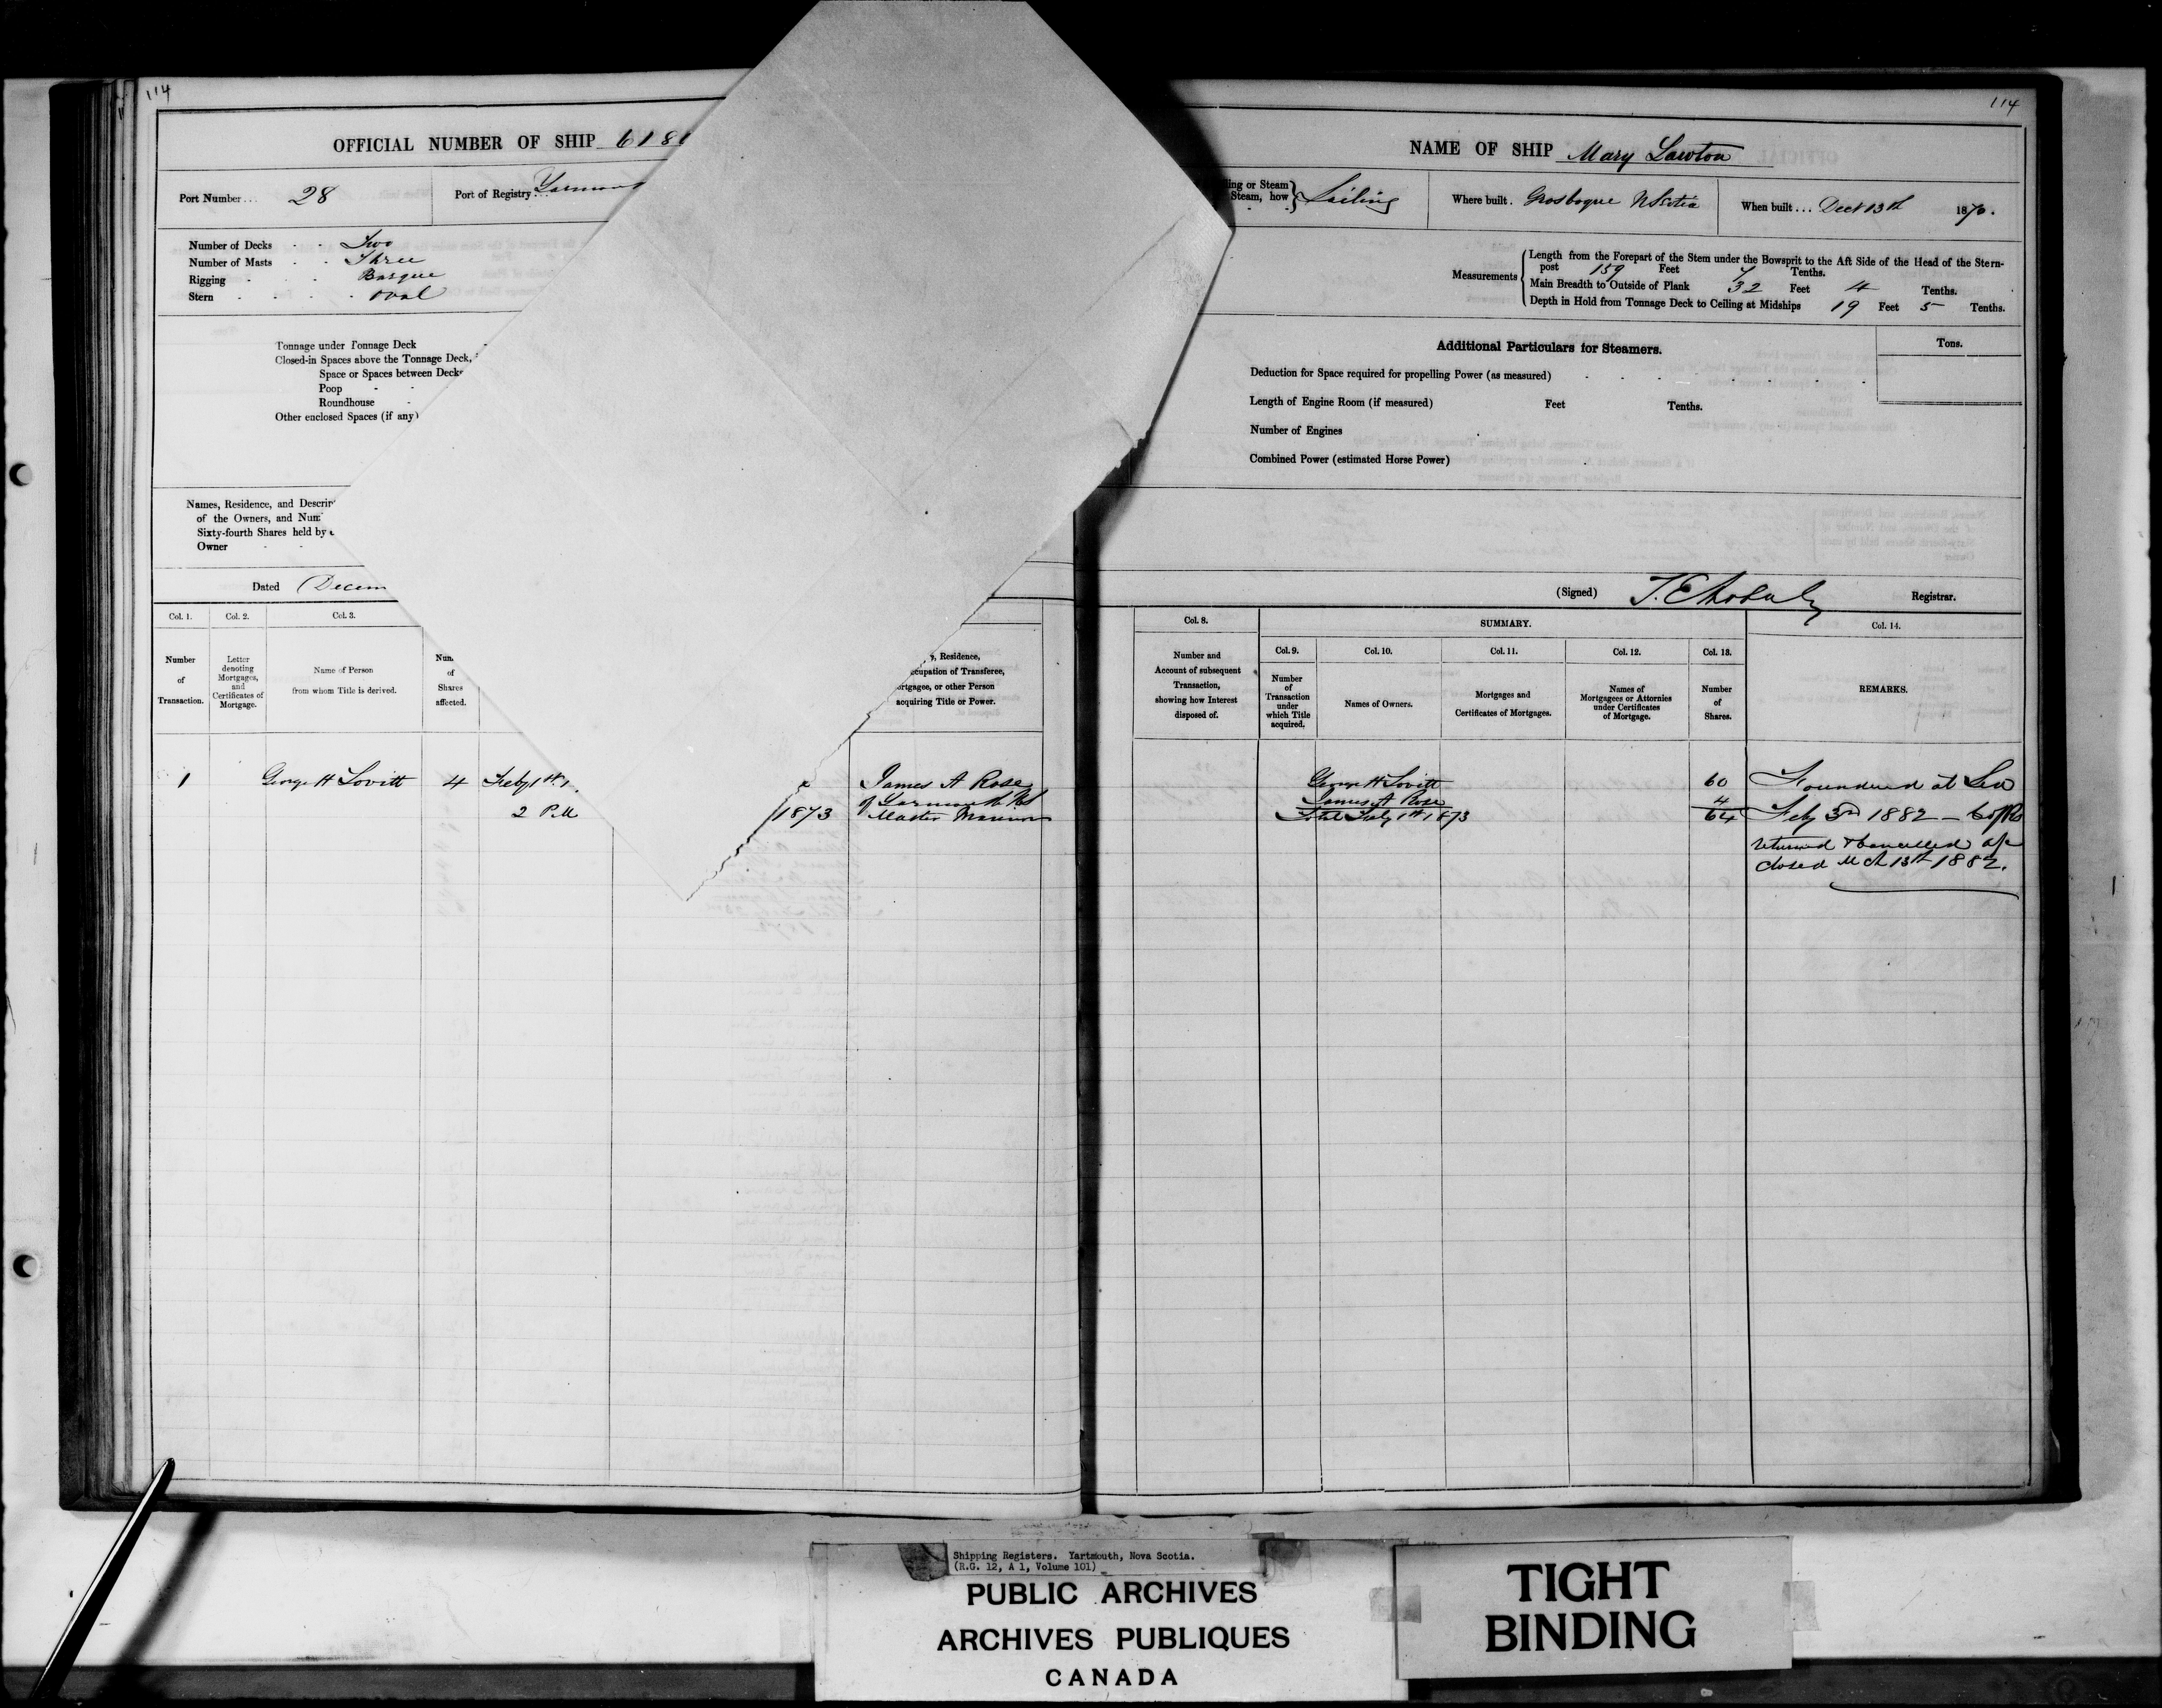 114
OFFICIAL NUMBER OF SHIP 618
Port Number... 28
Port of Registry...
Number of Decks - - Two
Number of Masts - - Three
Rigging - - - Barque
Stern - - - - oval
Tonnage under Tonnage Deck
Closed-in Spaces above the Tonnage Deck,
Space or Spaces between Decks
Poop - -
Roundhouse -
Other enclosed Spaces (if any)
Names, Residence, and
of the Owners, and
Sixty-fourth Shares held by
Owner - -
Dated Decem
Col. 1.
Col. 2.
Col. 3.
Number
of
Transaction.
Letter
denoting
Mortgages,
and
Certificates of
Mortgage.
Name of Person
from whom Title is derived.
of
Shares
affected.
Residence,
Occupation of Transferee,
Mortgagee, or other Person
acquiring Title or Power.
1 George H Lovitt 4 Feby 1st
2 P.M
1873
James A Rose
of Yarmouth NS
Master Mariner
114
NAME OF SHIP Mary Lawton
ing or Steam
Steam, how } Sailing
Where built. Grosboque NScotia
When built... Decr 13th 1870.
Measurements
Length from the Forepart of the Stem under the Bowsprit to the Aft Side of the Head of the Stern-
post 159 Feet 7 Tenths.
Main Breadth to Outside of Plank 32 Feet 4 Tenths.
Depth in Hold from Tonnage Deck to Ceiling at Midships 19 Feet 5 Tenths.
Additional Particulars for Steamers.
Tons.
Deduction for Space required for propelling Power (as measured)
Length of Engine Room (if measured) Feet Tenths.
Number of Engines
Combined Power (estimated Horse Power)
(Signed) Registrar.
Col. 8.
SUMMARY.
Col. 14.
Number and
Account of subsequent
Transaction,
showing how Interest
disposed of.
Col. 9.
Number
of
Transaction
under
which Title
acquired.
Col. 10.
Names of Owners.
Col. 11.
Mortgages and
Certificates of Mortgages.
Col. 12.
Names of
Mortgagees or Attornies
under Certificates
of Mortgage.
Col. 13.
Number
of
Shares.
REMARKS.
George H Lovitt 60
James A Rose 4
Total Feby 1st 1873 64
Foundered at Sea
Feby 3rd 1882 - C of R
returned & cancelled a/c
closed Mch 13th 1882.
Shipping Registers. Yartmouth, Nova Scotia.
(R.G. 12, A 1, Volume 101)
PUBLIC ARCHIVES
ARCHIVES PUBLIQUES
CANADA
TIGHT
BINDING